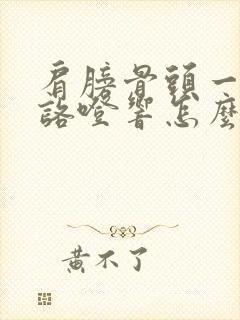 肩膀骨頭一
詻噔響怎麼
黃不了